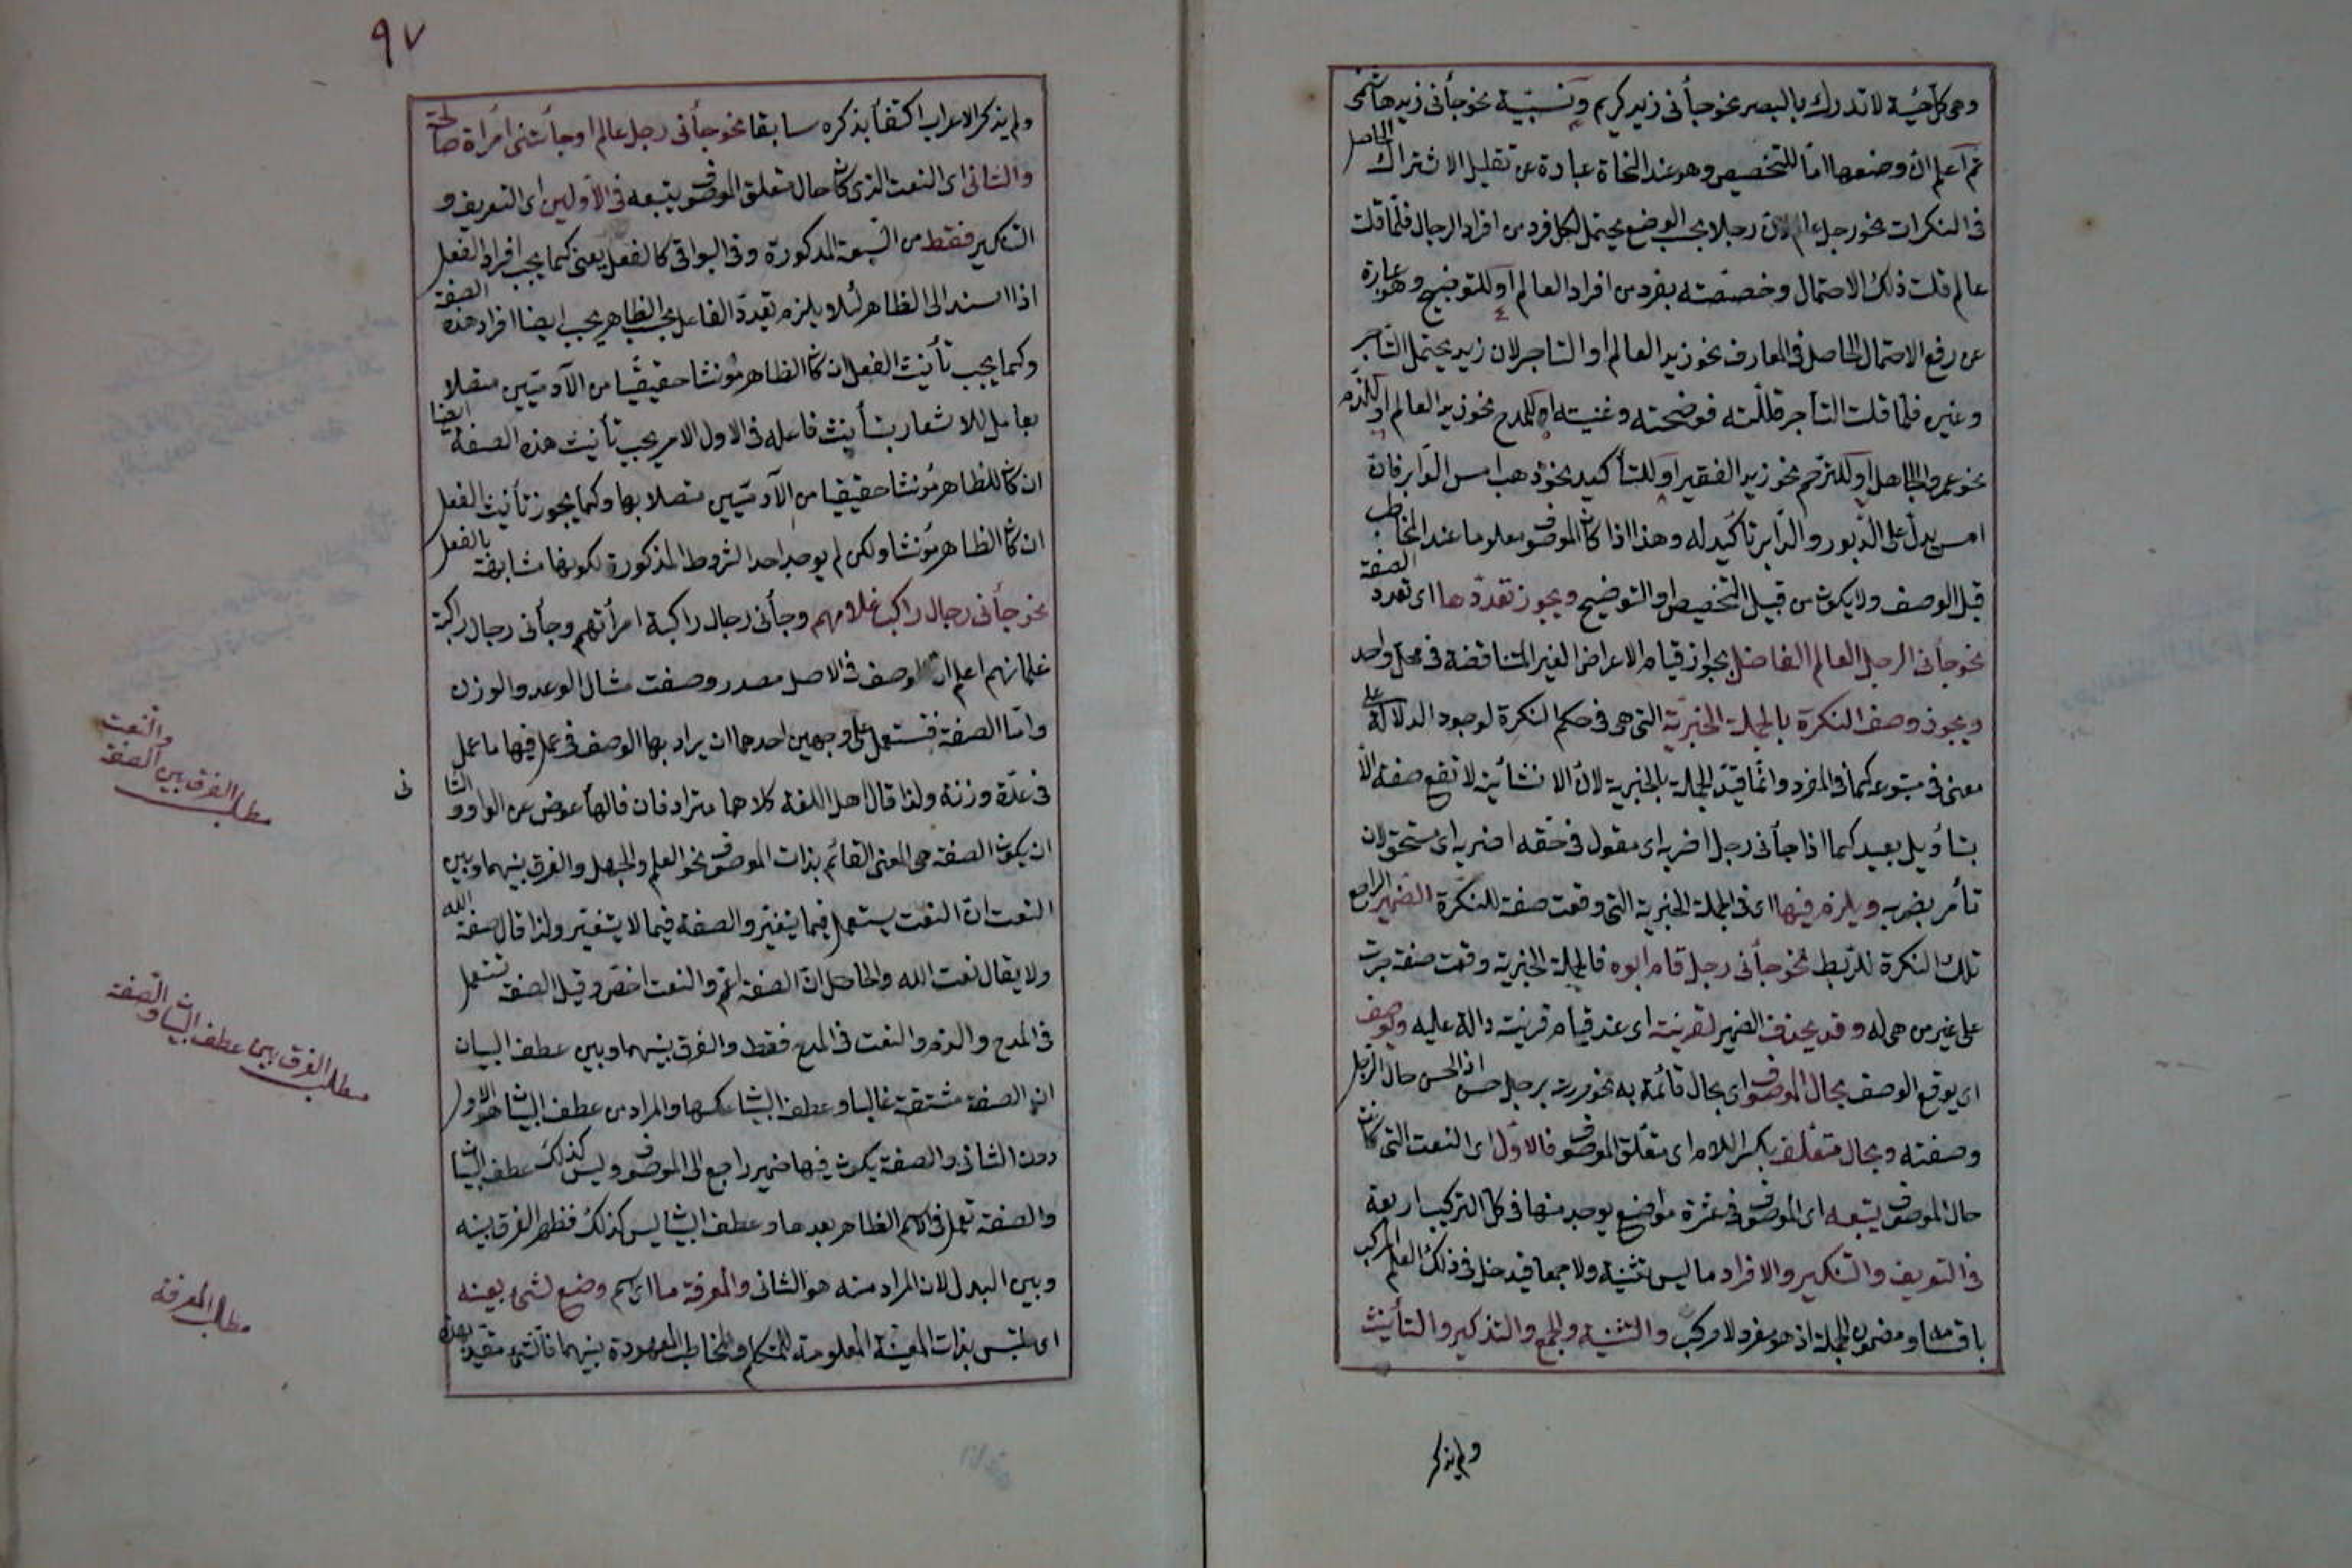 وهى كل حسّية لا تدرك بالبصر نحو جأنى زيد كريم ونسبيّة نحو جأنى زيد هاشمى
ثم اعلم ان وضعها امّا للتخصيص وهو عند النحاة عبارة عن تقليل الاشتراك الحاصل
فى النكرات نحو رجل عالم لان رجلا بحسب الوضع يحتمل لكل فرد من افراد الرجال فلمّا قلت
عالم قلت ذلك الاحتمال وخصّصته بفرد من افراد العالم او للتوضيح وهو عبارة
عن رفع الاحتمال الحاصل فى المعارف نحو زيد العالم او التاجر لان زيد يحتمل التاجر
وغيره فلمّا قلت التأجر قللّته فوضحته وعنيته او للمدح نحو زيد العالم او للذم
نحو عمرو الجاهل او للترحم نحو زيد الفقير او للتأكيد نحو ذهب امس الدّابر فان
امس يدلّ على الدّبور والدّابر تأكيد له وهذا اذا كان الموصوف معلوما عند المخاطب
قبل الوصف ولا يكون من قبيل التخصيص او التوضيح ويجوز تعدّدها اى تعدد الصفة
نحو جأنى الرجل العالم الفاضل بجواز قيام الاعراض الغير المتناقضة فى محل واحد
ويجوز وصف النكرة بالجملة الخبريّة التى هى فى حكم النكرة لوجود الدلالة على
معنى فى متبوعه كما فى المفرد وانّما قيّد الجملة بالخبرية لانّ الانشائية لا تقع صفة الّا
بتأويل بعيد كما اذا جأنى رجل اضربه اى مقول فى حقّه اضربه اى مستحق لان
تأمر بضربه ويلزم فيها اى فى الجملة الخبرية التى وقعت صفة للنكرة الضمير الراجع
تلك النكرة للربط نحو جأنى رجل قام ابوه فالجملة الخبرية وقعت صفة جرت
على غير من هى له وقد يحذف الضمير لقرينة اى عند قيام قرينة دالة عليه ويوصف
اى يوقع الوصف بحال الموصوف اى بحال قائمة به نحو مررت برجل حسن اذ الحسن حال الرجل
وصفته وبحال متعلّقه بكسر اللام اى متعلّق الموصوف فالاوّل اى النعت التى كانت
حال الموصوف يتبعه اى الموصوف فى عشرة مواضع يوجد منها فى كل التركيب اربعة
فى التعريف والتنكير والافراد ما ليس تثنية ولا جمعا فيدخل فى ذلك العلم المركب
باقسامه ومضمون الجملة اذ هو مفرد لا مركب والتثنية والجمع والتذكير والتأنيث
ولم يذكر
٩٧
ولم يذكر الاعراب اكتفأ بذكره سابقا نحو جأنى رجل عالم او جأتنى امرأة صالحة
والثانى اى النعت الذى كان حال متعلق الموصوف يتبعه فى الاولين اى التعريف و
التنكير فقط من السّبعة المذكورة وفى البواقى كالفعل يعنى كما يجب افراد الفعل
اذا اسند الى الظاهر لئلا يلزم تعدد الفاعل بحسب الظاهر يجب ايضا افراد هذه الصفة
وكما يجب تأنيث الفعل ان كان الظاهر مؤنثا حقيقيّا من الآدميّين متصلا
بعامله للاشعار بتأنيث فاعله فى الاول الامر يجب تأنيث هذه الصفة ايضا
ان كان للظاهر مؤنثا حقيقيا من الآدميّين متصلا بها وكما يجوز تأنيث الفعل
ان كان الظاهر مؤنثا ولكن لم يوجد احد الشروط المذكورة لكونها مشابهة بالفعل
نحو جأنى رجال راكب غلامهم وجأنى رجال راكبة امرأتهم وجأنى رجال راكبة
غلمانهم اعلم ان الوصف فى الاصل مصدر وصفت مثال الوعد والوزن
وامّا الصفة فتستعمل على وجهين احدهما ان يراد بها الوصف فى عمل فيها ما عمل
فى عدّة وزنة ولذا قال اهل اللغة كلاهما مترادفان فالهأ عوض عن الواو والثا
نى
ان يكون الصفة هى المعنى القائم بذات الموصوف نحو العلم والجهل والفرق بينهما وبين
النعت انّ النعت يستعمل فيما يتغيّر والصفة فيما لا يتغيّر ولذا قال صفة الله
ولا يقال نعت الله والحاصل انّ الصفة اعم والنعت اخصّ وقيل الصفة تستعمل
فى المدح والذم والنعت فى المدح فقط والفرق بينهما وبين عطف البيان
انّ الصفة مشتقة غالبا وعطف البيان عكسها والمراد من عطف البيان هو الاول
دون الثانى والصفة يكون فيها ضمير راجع الى الموصوف وليس كذلك عطف البيان
والصفة تعمل فى الاسم الظاهر بعدها وعطف البيان ليس كذلك فظهر الفرق بينه
وبين البدل لان المراد منه هو الثانى والمعرفة ما اى اسم وضع لشئ بعينه
اى ملتبس بذات المعيّنة المعلومة للمتكلم والمخاطب المعهودة بينهما
والنعت
مطلب الفرق بين الصفة
مطلب الفرق بين عطف البيان والصفة
مطلب المعرفة